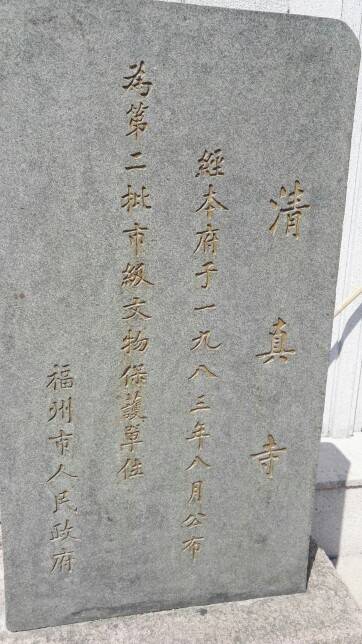 清真寺
經本府于一九八三年八月公布
為第二批市級文物保護單位
福州市人民政府